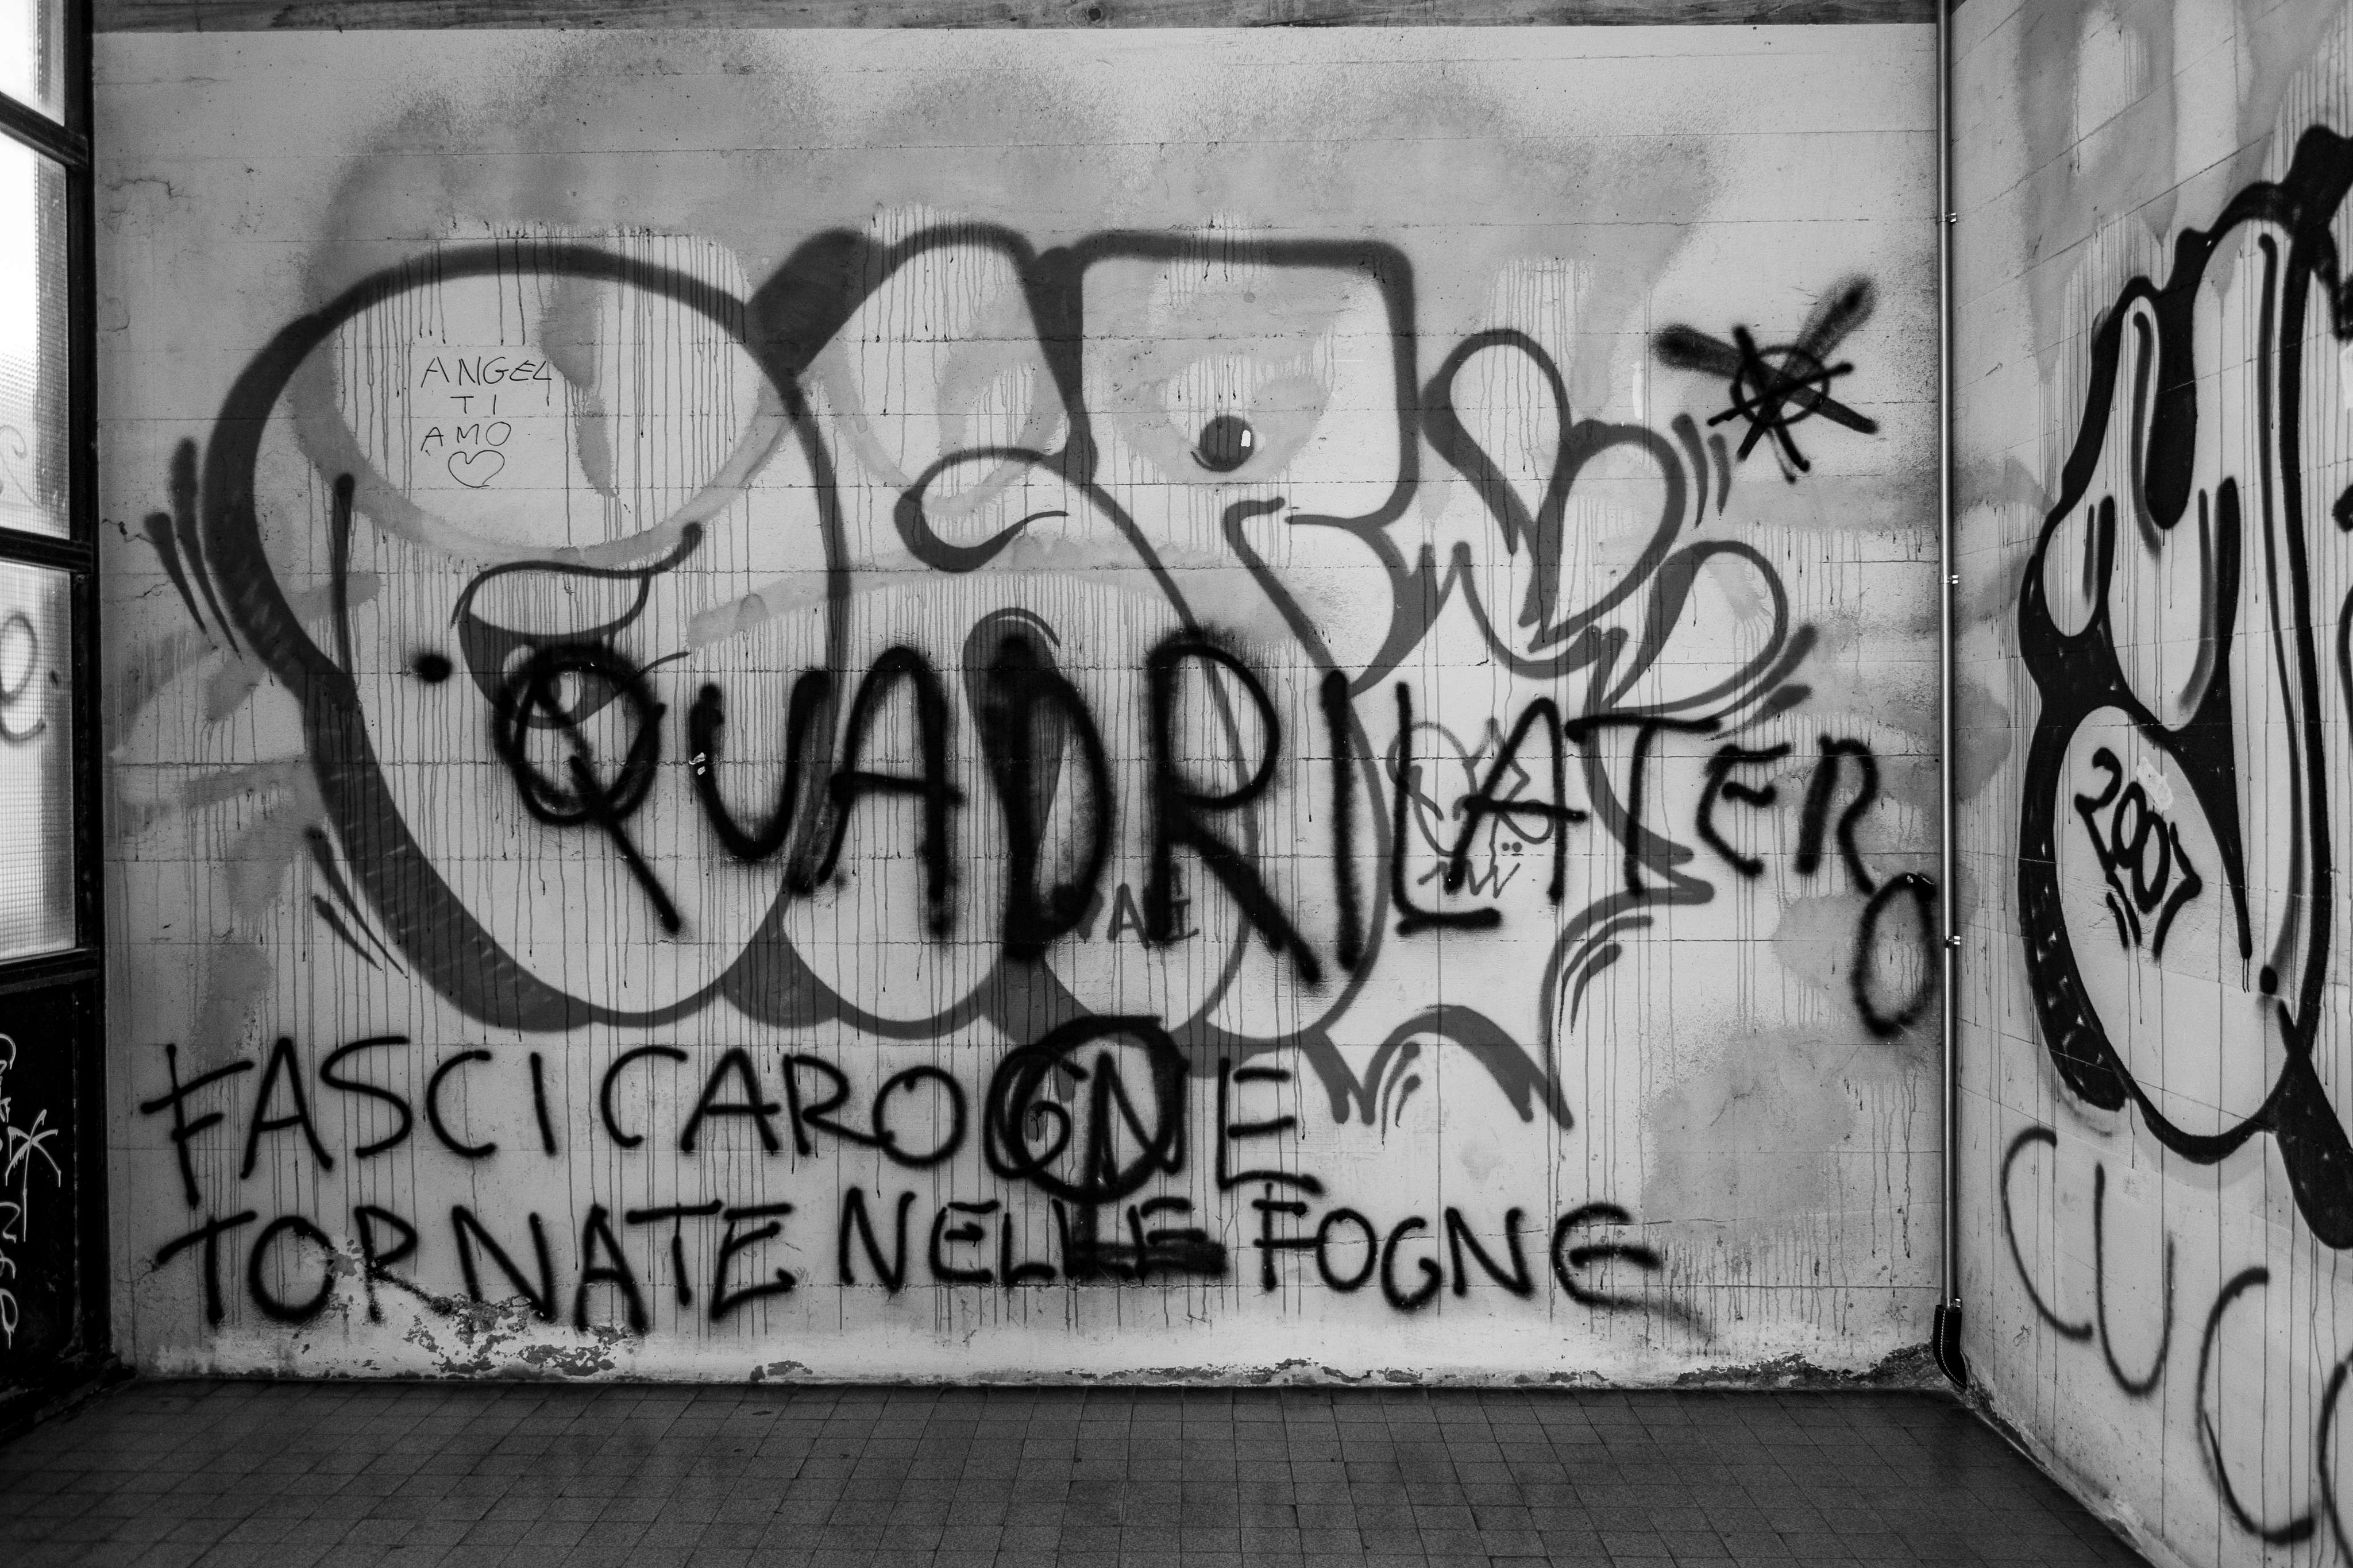 ANGEL
TI
AMO
QUADRILATERO
FASCI CAROGNE
TORNATE NELLE FOGNE
2007
CUC